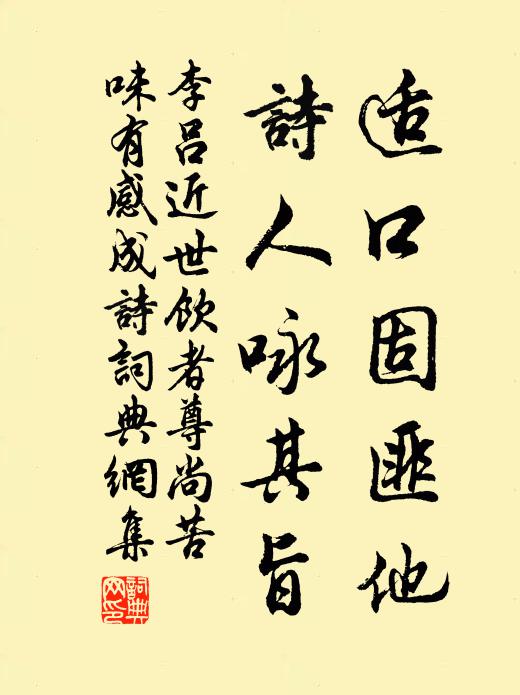 适口固匪他
詩人咏其旨
李吕近世飲者尊尚苦
味有感成詩詞典網集
詞典
网印